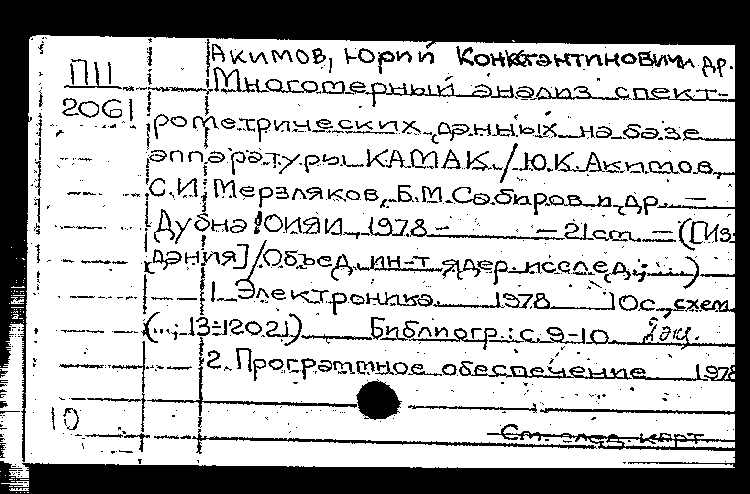 Акимов, Юрий Константинович и др.
П11 Многомерный анализ спект-
2061 рометрических данных на базе
аппаратуры КАМАК. / Ю.К. Акимов,
С.И. Мерзляков, Б.М. Сабиров и др. —
Дубна: ОИЯИ, 1978 - — 21 см. — ([Из-
дания] / Объед. ин-т ядер. исслед.; ...)
1. Электроника. 1978 10 с., схем.
(...; 13-12021) Библиогр.: с. 9-10. 2 экз.
2. Программное обеспечение 1978
10
См. след. карт.